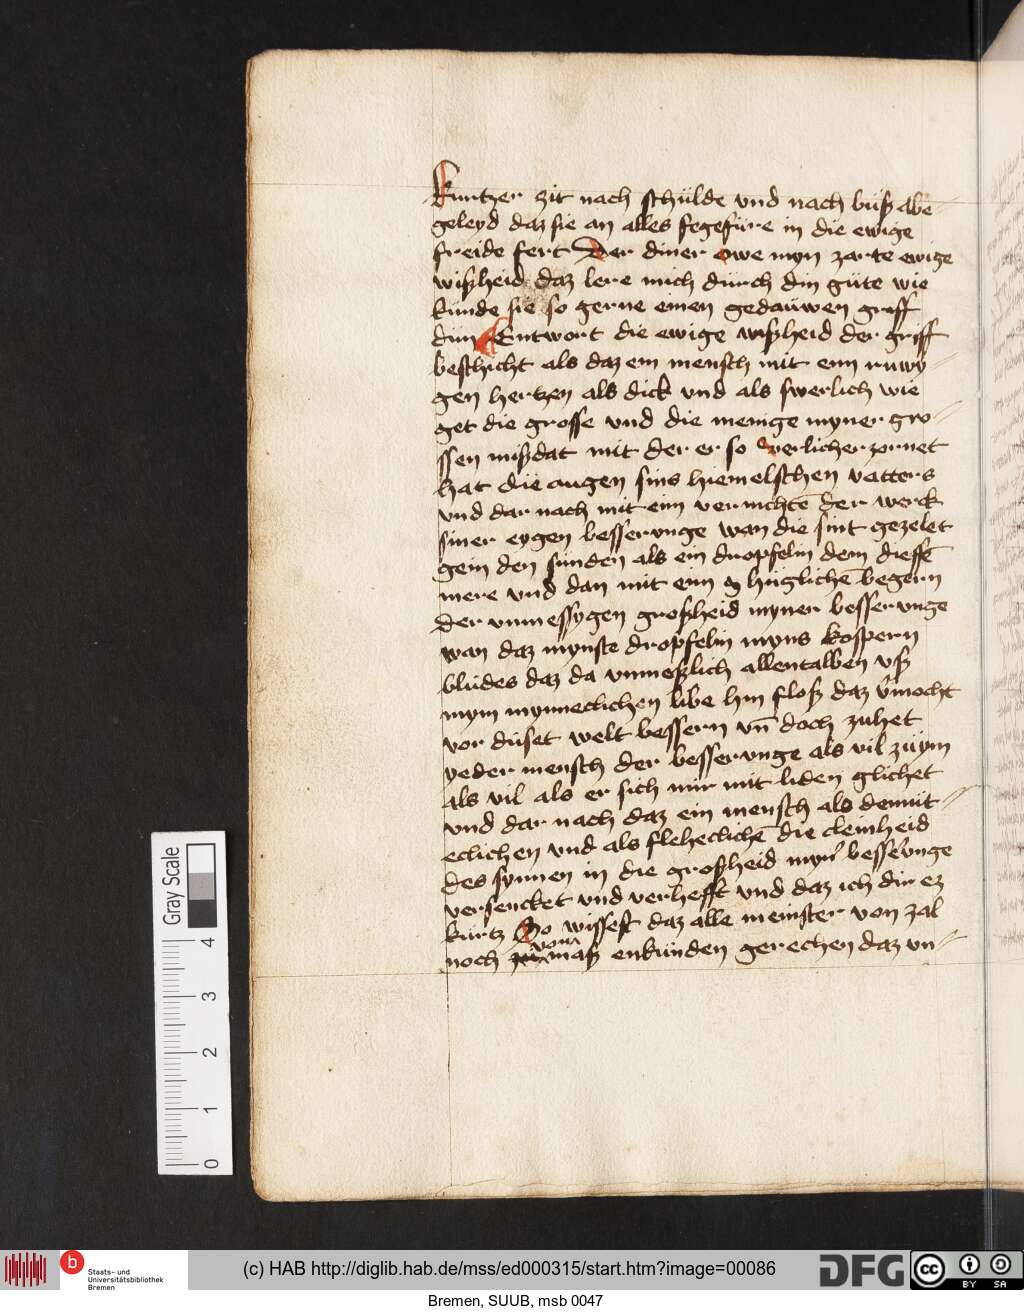 kurtzer zit nach schülde vnd nach büß abe
geleyd daz sie an alles fegefüre in die ewige
freide fert Der diner owe myn zarte ewige
wißheid daz lere mich dürch din güte wie
künde sie so gerne einen gedaüwen griff
dün Entwort die ewige wißheid der griff
beschicht als daz ein mensch mit eim ruwy//
gen hertzen als dick vnd als swerlich wie
get die grosse vnd die menige myner gro//
ssen mißdat mit der er so verlicher zornet
hat die augen sins hiemelschen vatters
vnd dar nach mit eim vernichtē der werck
siner eygen besserunge wan die sint gezelet
gein den sünden als ein dropfelin dem dieffē
mere vnd dan mit eim hüglichē begern
der vnmessygen großheid myner besserunge
wan daz mynste dropfelin myns kospern
blüdes daz da vnmeßlich allentalben vß
mym mynneclichen libe hin floß daz v̾mocht
vor düset welt bessern vn̄ doch zuhet
yeder mensch der besserunge als vil zü ym
als vil als er sich mir mit liden glichet
vnd dar nach daz ein mensch als demüt//
eclichen vnd als flehelichē die cleinheid
des synnen in die großheid myn̾ bess̾unge
versencket vnd verhefft vnd daz ich dir ez
kürtz So wissest daz alle meinster von zal
vom
noch maß enkünden gerechen daz vn//
Gray Scale
4
3
2
1
0
b Staats- und
Universitätsbibliothek
Bremen
(c) HAB http://diglib.hab.de/mss/ed000315/start.htm?image=00086
DFG
cc BY SA
Bremen, SUUB, msb 0047